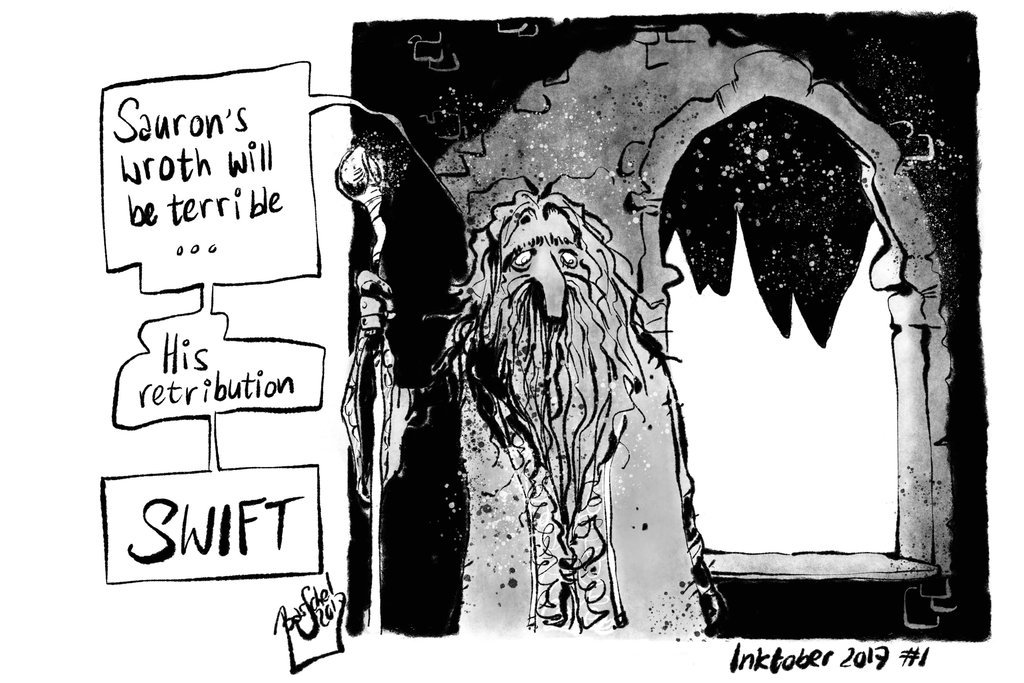 Sauron's
wroth will
be terrible
...
His
retribution
SWIFT
2017
Inktober 2017 #1